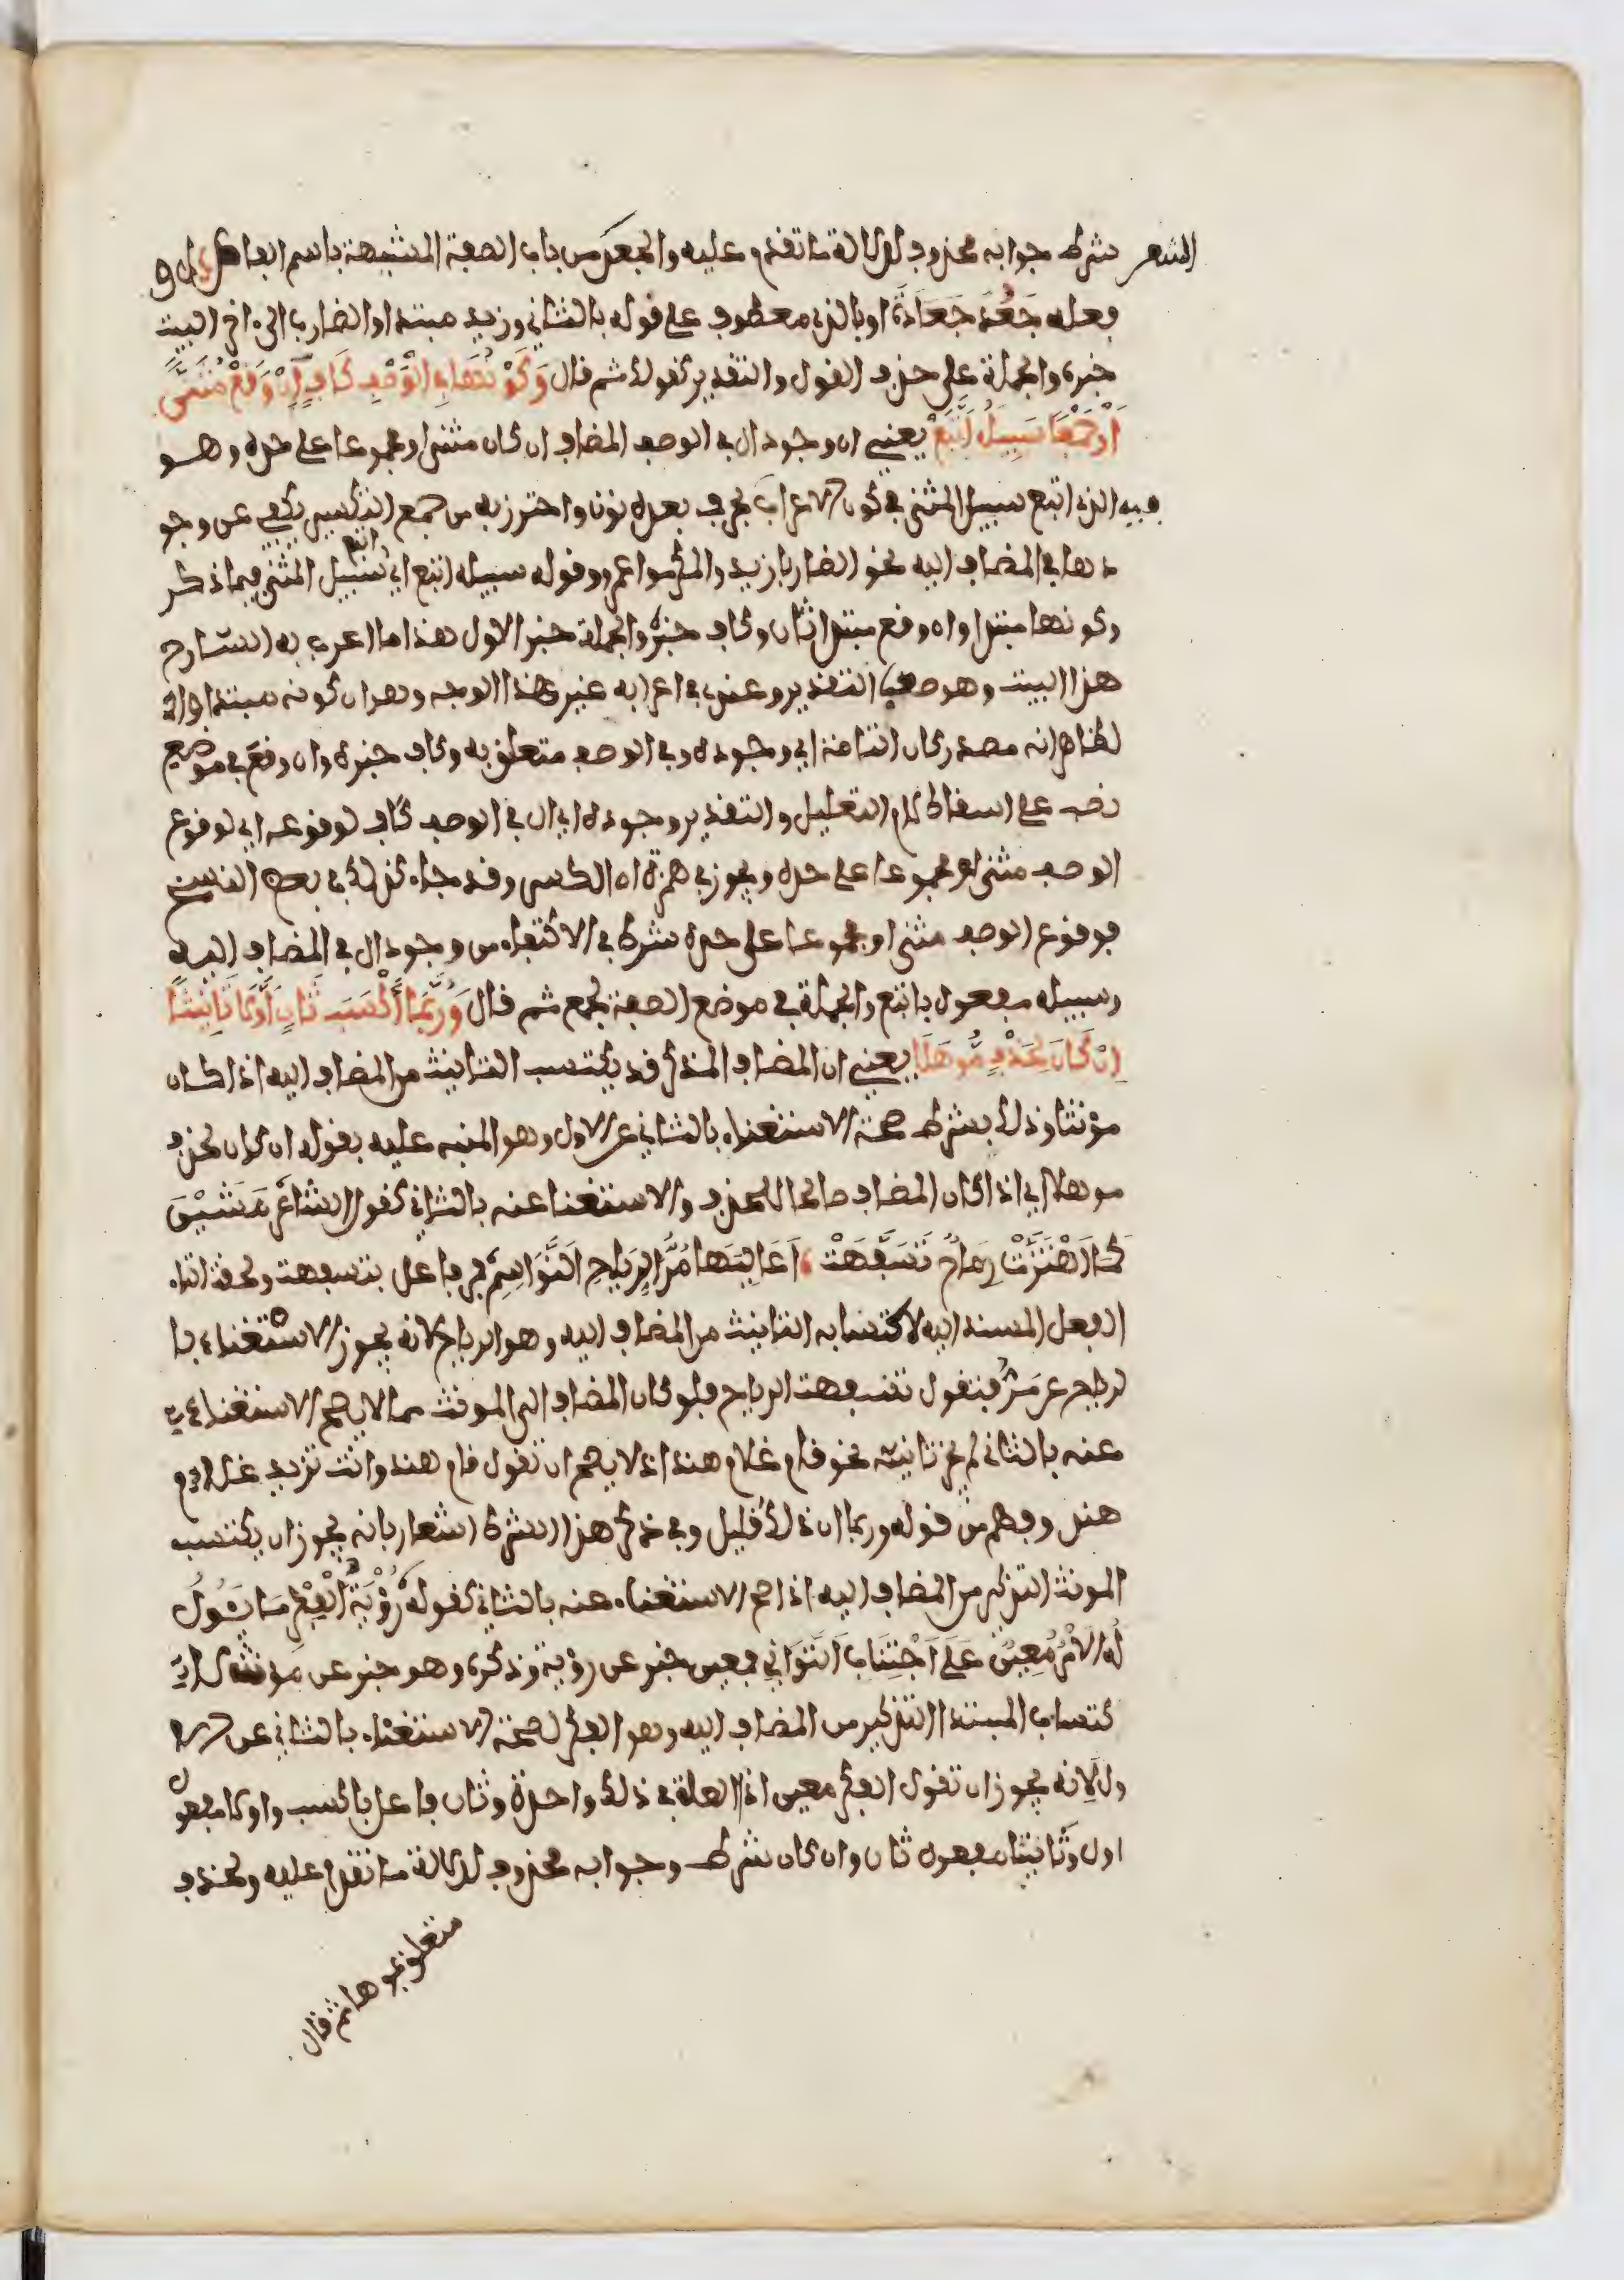 الشعر شرط جوابه محذوف لدلالة ما تقدم عليه والجعد من باب الصفة المشبهة باسم الفاعل
فعله جَعُدَ جَعَادَةً او بالذي معطوف على قوله بالثاني وزيد مبتدا والضارب الى اخر البيت
خبره والجملة على حذف القول والتقدير كقولك ثم قال وَكَوْنُهَا فِي الْوَصْفِ كَافٍ إِنْ وَقَعْ مُثَنًّى
أَوْ جَمْعًا سَبِيلَهُ اتَّبَعْ يعني ان وجود ال في الوصف المضاف ان كان مثنى او مجموعا على حده وهو
الذي اتبع سبيل المثنى في كون الاعراب بحرف بعده نون واحترز به من جمع التكسير يكفي عن وجو
دها في المضاف اليه نحو الضاربا زيد والمكرموا عمرو وقوله سبيله اتبع اي اتبع سبيل المثنى فيما ذكر
وكونها مبتدا وان وقع مبتدا ثان وكاف خبره والجملة خبر الاول هذا ما اعرب به الشارح
هذا البيت وهو صعب التقدير وعندي في اعرابه غير هذا الوجه وهو ان كونه مبتدا وا
لظاهر انه مصدر كان التامة اي وجوده وفي الوصف متعلق به وكاف خبره وان وقع في موضع
نصب على اسقاط لام التعليل والتقدير وجوده اي ال في الوصف كاف لوقوعه اي لوقوع
الوصف مثنى او مجموعا على حده ويجوز في همزة ان الكسر وقد جاء كذلك في بعض النسخ
فوقوع الوصف مثنى او مجموعا على حده شرط في الاكتفاء من وجود ال في المضاف اليه
وسبيله مفعول باتبع والجملة في موضع الصفة لجمع ثم قال وَرُبَّمَا أَكْسَبَ ثَانٍ أَوَّلَا تَأْنِيثًا
اِنْ كَانَ لِحَذْفٍ مُوهَلَا يعني ان المضاف المذكر قد يكتسب التانيث من المضاف اليه اذا كان
مؤنثا وذلك بشرط صحة الاستغناء بالثاني عن الاول وهو المنبه عليه بقوله ان كان لحذف
موهلا اي اذا كان المضاف صالحا للحذف والاستغنا عنه بالثاني كقول الشاعر مَشَيْنَ
كَمَا اَهْتَزَّتْ رِمَاحٌ تَسَفَّهَتْ اَعَالِيَهَا مَرُّ الرِّيَاحِ النَّوَاسِمِ فمر فاعل بتسفهت ولحقت التاء
الفعل المسند اليه لاكتسابه التانيث من المضاف اليه وهو الرياح لانه يجوز الاستغناء با
لرياح عن مَرُّ فتقول تسفهت الرياح فلو كان المضاف الى المونث مما لا يصح الاستغناء
عنه بالثاني لم يجز تانيثه نحو قام غلام هند اذ لا يصح ان تقول قام هند وانت تريد غلام
هند وفهم من قوله وربما ان ذلك قليل وفي ذكر هذا الشرط اشعار بانه يجوز ان يكتسب
المونث التذكير من المضاف اليه اذا صح الاستغناء عنه بالثاني كقوله رُؤْيَةُ الْفِكْرِ مَا يَئُولُ
لَهُ الاَمْرُ مُعِينٌ عَلَى اَجْتِنَابِ التَّوَانِي فمعين خبر عن رؤية وذكره وهو خبر عن مؤنث لا
كتساب المبتدا التذكير من المضاف اليه وهو الفكر لصحة الاستغناء بالثاني عن الا
ول لانه يجوز ان تقول الفكر معين اذ العلة في ذلك واحدة وثان فاعل باكسب واولا مفعول
اول وتانيثا مفعول ثان وان كان شرط وجوابه محذوف لدلالة ما تقدم عليه ولحذف
متعلق بموهلا ثم قال